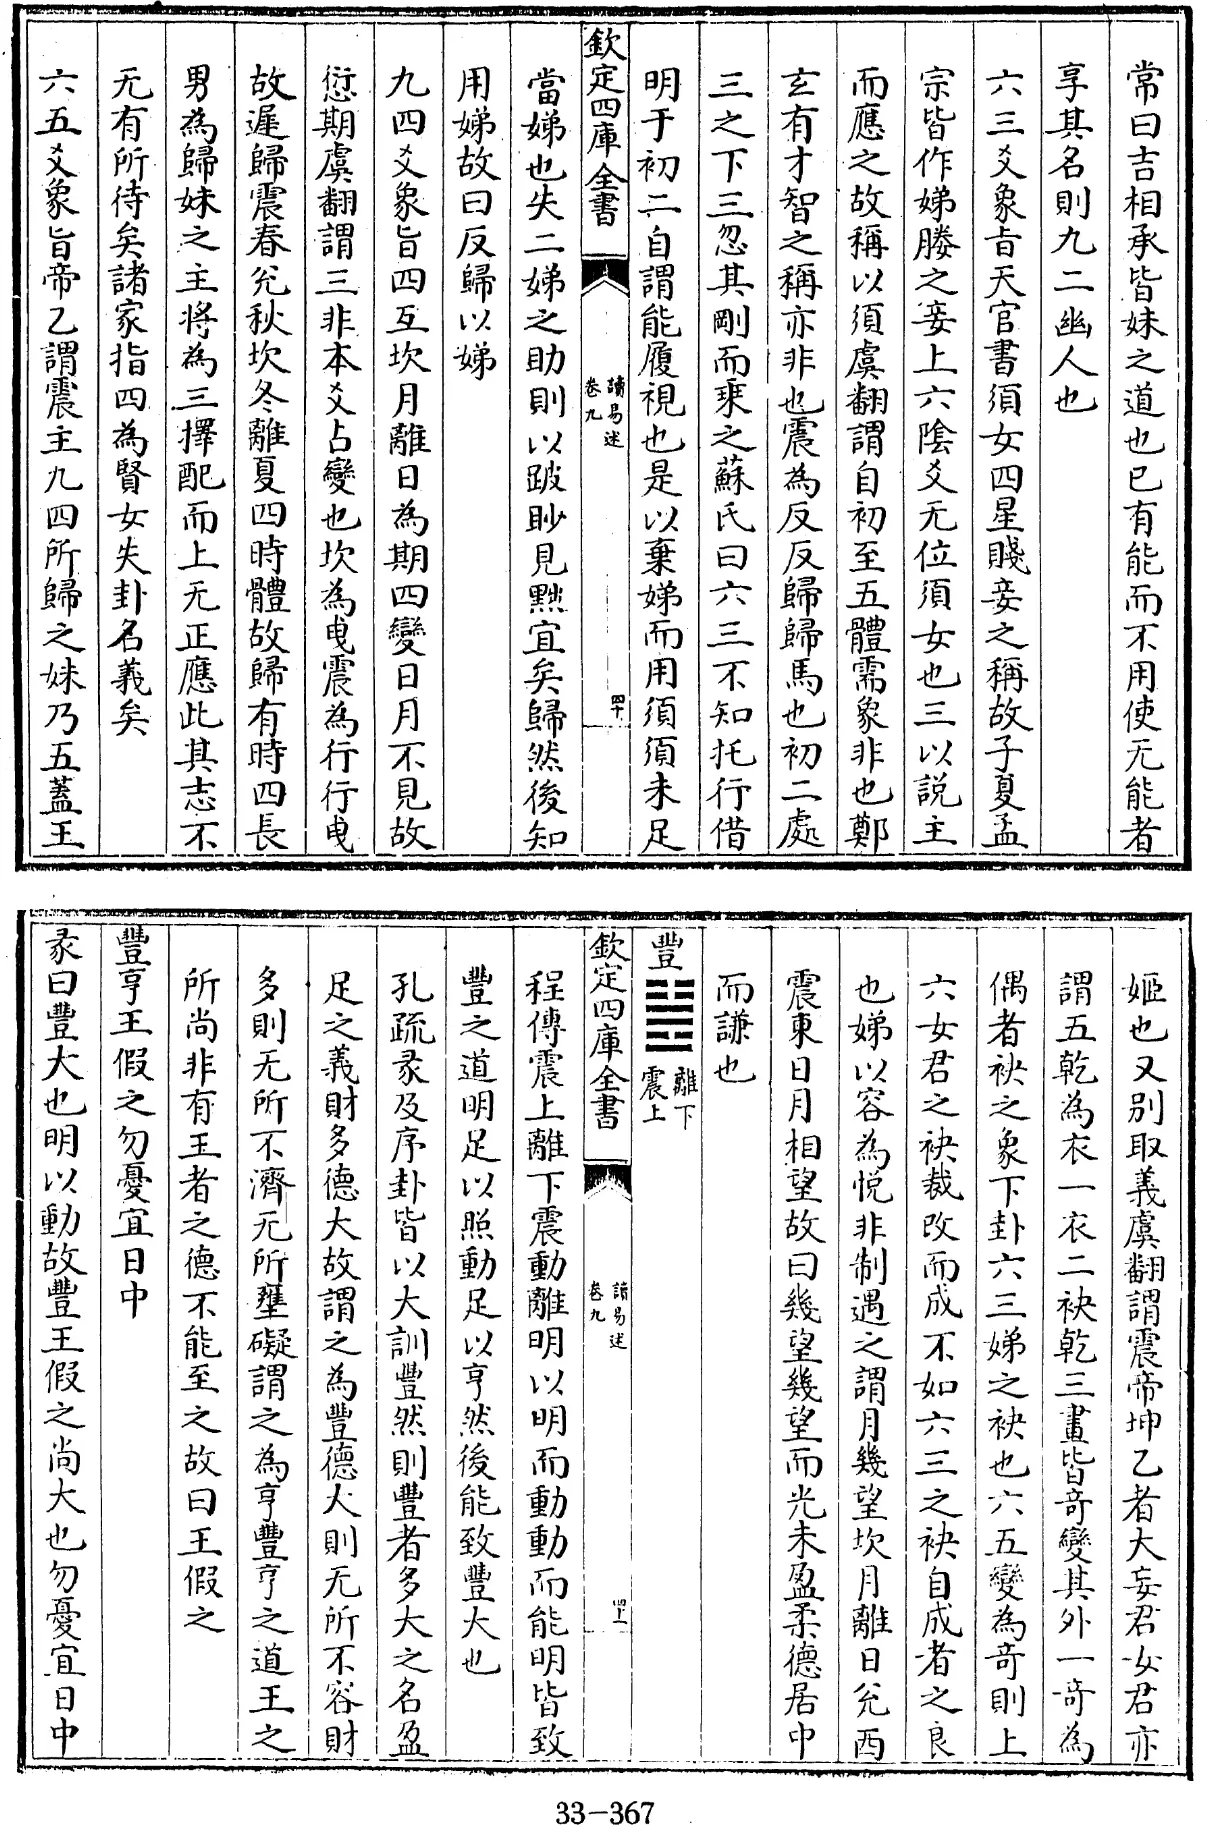 常曰吉相承皆妹之道也已有能而不用使无能者
享其名則九二幽人也
六三爻象旨天官書須女四星賤妾之稱故子夏孟
宗皆作娣媵之妾上六陰爻无位須女也三以説主
而應之故稱以須虞翻謂自初至五體需象非也鄭
玄有才智之稱亦非也震為反反歸歸馬也初二處
三之下三忽其剛而乗之蘇氏曰六三不知托行借
明于初二自謂能履視也是以棄娣而用須須未足
欽定四庫全書
讀易述
卷九
四十
當娣也失二娣之助則以跛眇見黜宜矣歸然後知
用娣故曰反歸以娣
九四爻象旨四互坎月離日為期四變日月不見故
愆期虞翻謂三非本爻占變也坎為曵震為行行曵
故遲歸震春兊秋坎冬離夏四時體故歸有時四長
男為歸妹之主將為三擇配而上无正應此其志不
无有所待矣諸家指四為賢女失卦名義矣
六五爻象旨帝乙謂震主九四所歸之妹乃五蓋王
姬也又别取義虞翻謂震帝坤乙者大妄君女君亦
謂五乾為衣一衣二袂乾三畫皆竒變其外一竒為
偶者袂之象下卦六三娣之袂也六五變為竒則上
六女君之袂裁改而成不如六三之袂自成者之良
也娣以容為悦非制遇之謂月幾望坎月離日兊西
震東日月相望故曰幾望幾望而光未盈柔德居中
而謙也
豐䷶
離下
震上
欽定四庫全書
讀易述
卷九
四十一
程傳震上離下震動離明以明而動動而能明皆致
豐之道明足以照動足以亨然後能致豐大也
孔疏彖及序卦皆以大訓豐然則豐者多大之名盈
足之義財多德大故謂之為豐德大則无所不容財
多則无所不濟无所壅礙謂之為亨豐亨之道王之
所尚非有王者之德不能至之故曰王假之
豐亨王假之勿憂宜日中
彖曰豐大也明以動故豐王假之尚大也勿憂宜日中
33-367